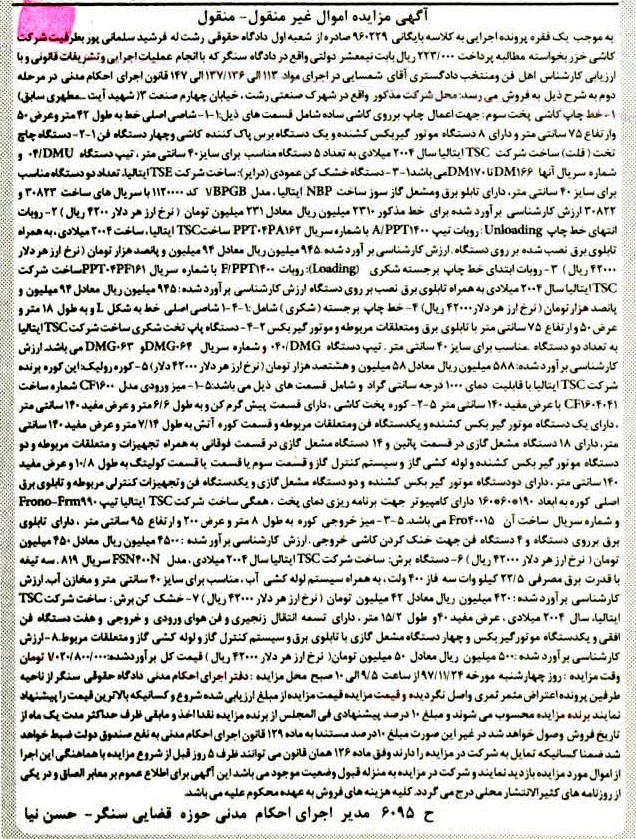 آگهی مزایده اموال غیر منقول- منقول
به موجب یک فقره پرونده اجرایی به کلاسه بایگانی ۹۶۰۲۲۹ صادره از شعبه اول دادگاه حقوقی رشت له فرشید سلمانی پور بطرفیت شرکت
کاشی خزر بخواسته مطالبه پرداخت ۲۲۳/۰۰۰ ریال بابت نیمعشر دولتی واقع در دادگاه سنگر که با انجام عملیات اجرایی و تشریفات قانونی و با
ارزیابی کارشناس اهل فن ومنتخب دادگستری آقای شمسایی در اجرای مواد ۱۱۳ الی ۱۳۷/۱۳۶ الی ۱۴۷ قانون اجرای احکام مدنی در مرحله
دوم به شرح ذیل به فروش می رسد: محل شرکت مذکور واقع در شهرک صنعتی رشت ، خیابان چهارم صنعت ۳( شهید آیت ـ مطهری سابق)
۱- خط چاپ کاشی پخت سوم: جهت اعمال چاپ برروی کاشی ساده شامل قسمت های ذیل:۱-۱- شاصی اصلی خط به طول ۴۲ متر وعرض ۵۰
وارتفاع ۷۵ سانتی متر و دارای ۸ دستگاه موتور گیربکس کشنده و یک دستگاه برس پاک کننده کاشی وچهار دستگاه فن ۲-۱- دستگاه چاپ
تخت ( فلت) ساخت شرکت TSC ایتالیا سال ۲۰۰۴ میلادی به تعداد ۵ دستگاه مناسب برای سایز ۴۰ سانتی متر ، تیپ دستگاه ۰۴/DMU و
شماره سریال آنها DM۱۶۶ تا DM۱۷۰ می باشد ۳-۱- دستگاه خشک کن عمودی (درایر): ساخت شرکت TSE ایتالیا، تعداد دو دستگاه مناسب
برای سایز ۴۰ سانتی متر، دارای تابلو برق ومشعل گاز سوز ساخت NBP ایتالیا ، مدل VBPGB کد ۱۱۲۰۰۰۰ با سریال های ساخت ۳۰۸۲۳ و
۳۰۸۲۲ ارزش کارشناسی برآورد شده برای خط مذکور ۲۳۱۰ میلیون ریال معادل ۲۳۱ میلیون تومان ( نرخ ارز هر دلار ۴۲۰۰ ریال ) ۲- روبات
انتهای خط چاپ Unloading: روبات تیپ A/PPT۱۴۰۰ با شماره سریال PPT۰۴PA۱۶۲ ساخت TSC ایتالیا ، ساخت ۲۰۰۴ میلادی ، به همراه
تابلوی برق نصب شده بر روی دستگاه . ارزش کارشناسی برآورد شده .۹۴۵ میلیون ریال معادل ۹۴ میلیون و پانصد هزار تومان (نرخ ارز هر دلار
۴۲۰۰۰ ریال ) ۳- روبات ابتدای خط چاپ برجسته شکری (Loading): روبات F/PPT۱۴۰۰ با شماره سریال PPT۰۴PF۱۶۱ ساخت شرکت
TSC ایتالیا سال ۲۰۰۴ میلادی به همراه تابلوی برق نصب بر روی دستگاه ارزش کارشناسی برآورد شده : ۹۴۵ میلیون ریال معادل ۹۴ میلیون و
پانصد هزارتومان (نرخ ارز هر دلار۴۲۰۰۰ ریال) ۴- خط چاپ برجسته (شکری ) شامل :۱-۴- شاصی اصلی خط به شکل L و به طول ۱۸ متر و
عرض ۵۰ وارتفاع ۷۵ سانتی متر با تابلوی برق ومتعلقات مربوطه و موتور گیربکس ۲-۴- دستگاه پاپ تخت شکری ساخت شرکت TSC ایتالیا
به تعداد دو دستگاه .مناسب برای سایز ۴۰ سانتی متر . تیپ دستگاه ۰۴۰/DMG و شماره سریال DMG۰۶۴ و DMG۰۶۳ می باشد. ارزش
کارشناسی برآورد شده: ۵۸۸ میلیون ریال معادل ۵۸ میلیون و هشتصد هزار تومان (نرخ ارز هر دلار ۴۲۰۰۰ دلار) ۵- کوره رولیک: این کوره برنده
شرکت TSC ایتالیا با قابلیت دمای ۱۰۰۰ درجه سانتی گراد و شامل قسمت های ذیل می باشد: ۱-۵- میز ورودی مدل CF۱۶۰۰ شماره ساخت
CF۱۶۰۴۰۴۱ با عرض مفید ۱۴۰ سانتی متر ۲-۵- کوره پخت کاشی ، دارای قسمت پیش گرم کن و به طول ۶/۶ متر و عرض مفید ۱۴۰ سانتی متر
، دارای یک دستگاه موتور گیربکس کشنده و یکدستگاه فن ومتعلقات مربوطه و قسمت کوره آتش به طول ۷/۱۴ متر و عرض مفید ۱۴۰ سانتی
متر، دارای ۱۸ دستگاه مشعل گازی در قسمت پائین و ۱۴ دستگاه مشعل گازی در قسمت فوقانی به همراه تجهیزات و متعلقات مربوطه و دو
دستگاه موتور گیربکس کشنده و لوله کشی گاز و سیستم کنترل گاز و قسمت سوم یا قسمت یا قسمت کولینگ به طول ۱۰/۸ و عرض مفید
۱۴۰ سانتی متر ، دارای دودستگاه موتور گیربکس کشنده و دو دستگاه مشعل گازی و یکدستگاه فن وتجهیزات کنترلی مربوطه و تابلوی برق
اصلی کوره به ابعاد ۱۹۰*۶۰*۱۶۰ دارای کامپیوتر جهت برنامه ریزی دمای پخت ، همگی ساخت شرکت TSC ایتالیا تیپ Frono-Frm۹۹۰
و شماره سریال ساخت آن Fro۴۰۰۱۵ می باشد. ۳-۵- میز خروجی کوره به طول ۸ متر و عرض ۲۰۰ و ارتفاع ۹۵ سانتی متر ، دارای تابلوی
برق برروی دستگاه و ۴ دستگاه فن جهت خنک کردن کاشی خروجی. ارزش کارشناسی برآورد شده : ۴۵۰۰ میلیون ریال معادل ۴۵۰ میلیون
تومان ( نرخ ارز هر دلار ۴۲۰۰۰ ریال ) ۶- دستگاه برش: ساخت شرکت TSC ایتالیا سال ۲۰۰۴ میلادی ، مدل FSN۴۰۰N سریال ۸۱۹ . سه تیغه
با قدرت برق مصرفی ۲۲/۵ کیلو وات سه فاز ۴۰۰ ولت ، به همراه سیستم لوله کشی آب ، مناسب برای سایز ۴۰ سانتی متر و مخازن آب. ارزش
کارشناسی برآورد شده : ۴۲۰ میلیون ریال معادل ۴۲ میلیون تومان (نرخ ارز هر دلار ۴۲۰۰۰ ریال ) ۷- خشک کن برش: ساخت شرکت TSC
ایتالیا، سال ۲۰۰۴ میلادی ، عرض مفید ۴۰و طول ۱۵/۲ متر ، دارای تسمه انتقال زنجیری و فن هوای ورودی و خروجی و هفت دستگاه فن
افقی و یکدستگاه موتورگیربکس و چهار دستگاه مشعل گازی با تابلوی برق و سیستم کنترل گاز و لوله کشی گاز و متعلقات مربوط.۸- ارزش
کارشناسی برآورد شده :۵۰۰ میلیون ریال معادل ۵۰ میلیون تومان( نرخ ارز هر دلار ۴۲۰۰۰ ریال ) قیمت کل برآوردشده: ۷/۰۲۰/۸۰۰/۰۰۰ تومان
وقت مزایده : روز چهارشنبه مورخه ۹۷/۱۱/۲۴ از ساعت ۹/۵ الی ۱۰ صبح محل مزایده : دفتر اجرای احکام مدنی دادگاه حقوقی سنگر از ناحیه
طرفین پرونده اعتراض مثمر ثمری واصل نگردیده و قیمت مزایده قیمت مزایده از مبلغ ارزیابی شده شروع و کسانیکه بالاترین قیمت را پیشنهاد
نمایند برنده مزایده محسوب می شوند و مبلغ ۱۰ درصد پیشنهادی فی المجلس از برنده مزایده نقدا اخذ و مابقی ظرف حداکثر مدت یک ماه از
تاریخ فروش وصول خواهد شد در غیر این صورت مبلغ ۱۰درصد مستندا به ماده ۱۲۹ قانون اجرای احکام مدنی به نفع صندوق دولت ضبط خواهد
شد ضمنا کسانیکه تمایل به شرکت در مزایده را دارند وفق ماده ۱۲۶ همان قانون می توانند ظرف ۵ روز قبل از شروع مزایده با هماهنگی این اجرا
از اموال مورد مزایده بازدید نمایند و شرکت در مزایده به منزله قبول وضعیت موجود می باشد. این آگهی برای اطلاع عموم بر معابر الصاق و در یکی
از روزنامه های کثیرالانتشار محلی درج می گردد. کلیه هزینه های فروش به عهده محکوم علیه می باشد.
ح ۶۰۹۵ مدیر اجرای احکام مدنی حوزه قضایی سنگر- حسن نیا